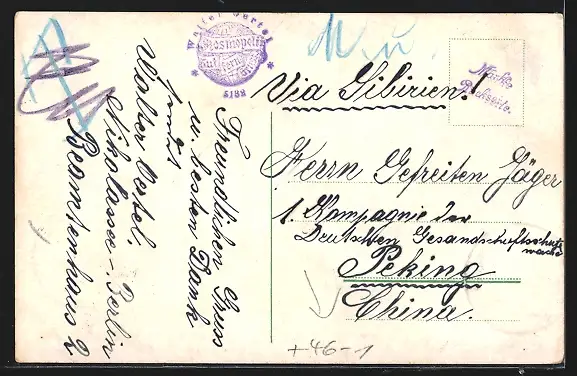 Walter Oertel
Kosmopolit
5188
M. u.
Marke
Rückseite.
Via Sibirien!
Herrn Gefreiten Jäger
1. Kompagnie der
Deutschen Gesandschaftsschutz
wache
Peking
China.
Freundlichen Gruss
u. besten Dank
sendet
Walter Oertel,
Nikolassee-Berlin
Beamtenhaus 2
+46-1